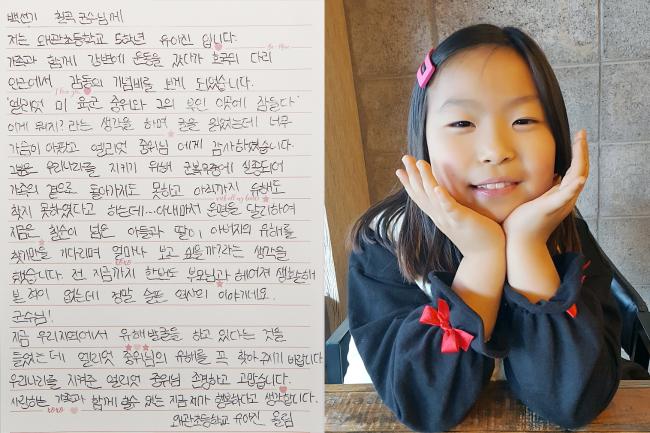 백선기 칠곡 군수님께
저는 왜관초등학교 5학년 유아진 입니다.
가족과 함께 강변에 운동을 갔다가 호국의 다리
인근에서 감동의 기념비를 보게 되었습니다.
I love you
'엘리엇 미 육군 중위와 그의 부인 이곳에 잠들다'
이게 뭐지? 라는 생각을 하며 글을 읽었는데 너무
가슴이 아팠고 엘리엇 중위님 에게 감사하였습니다
그분은 우리나라를 지키기 위해 군복무중에 실종되어
가족의 곁으로 돌아가지도 못하고 아직까지 유해도
with all my heart
찾지 못하였다고 하는데...아내마저 운명을 달리하여
지금은 환순이 넘은 아들과 딸이 아버지의 유해를
찾기만을 기다리며 얼마나 보고 싶을까?라는 생각을
xoxo
했습니다. 전 지금까지 한번도 부모님과 헤어져 생활해
본 적이 없는데 정말 슬픈 역사의 이야기네요.
군수님!
지금 우리지역에서 유해발굴을 하고 있다는 것을
들었는데 엘리엇 중위님의 유해를 꼭 찾아주시기 바랍니다
우리나라를 지켜준 엘리엇 중위님 존경하고 고맙습니다.
사랑하는 가족과 함께 할수 있는 지금 제가 행복하다고 생각합니다.
xoxo
왜관초등학교 유아진 올림